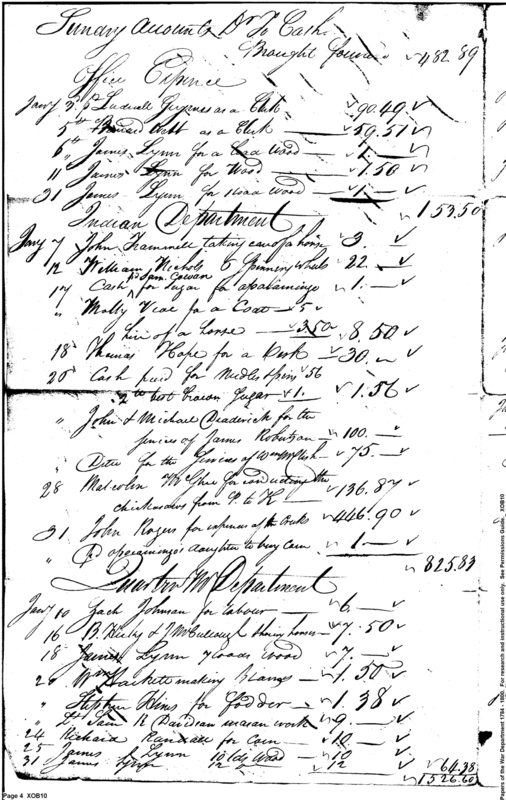 Sundry Accounts Dr To Cash
Brought forward 482.89
Office Expence
Jany 3d as a Clk 90.49
5th Webb as a Clk 59.51
6th James Lynn for a Load Wood 1.—
11 James Lynn for Wood 1.50
31 James Lynn for Load Wood 1.—
153.50
Indian Department
Jany 7 John Trammell taking care of a horse 3.—
12 William Nichols 6 Spinning Wheels 22.—
pd Sam. Cowan
17 Cash for Sugar for 1.—
" Molly for a Coat 5
hire of a horse 3.50 8.50
18 Thomas Hope for a Desk 30.—
20 Cash paid for Needles & pins 56
2 lb brown Sugar 1. 1.56
" John & Michael Deaderick for the
services of James Robertson 100.—
" Ditto for the Services of 75.—
28 Malcolm McGhee for conducting the
Chickasaws from P. to K 136.87
31 John Rogers for expenses of the 446.90
" daughter to buy Corn 1.—
825.83
Quarter Mr Department
Jany 10 Zach Johnson for labour 6—
16 B. & J McCullough horses 7.50
18 James Lynn 7 loads Wood 7.—
20 Wm making 1.50
" Stephen Hines for Fodder 1.38
" R Davidson work 9.—
24 Richard for Corn 10—
25 James Lynn 10 lds Wood 10
31 James Lynn 12 12
64.38
1526.60
Page 4 XOB10
Papers of the War Department 1784 - 1800. For research and instructional use only. See Permissions Guide. XOB10